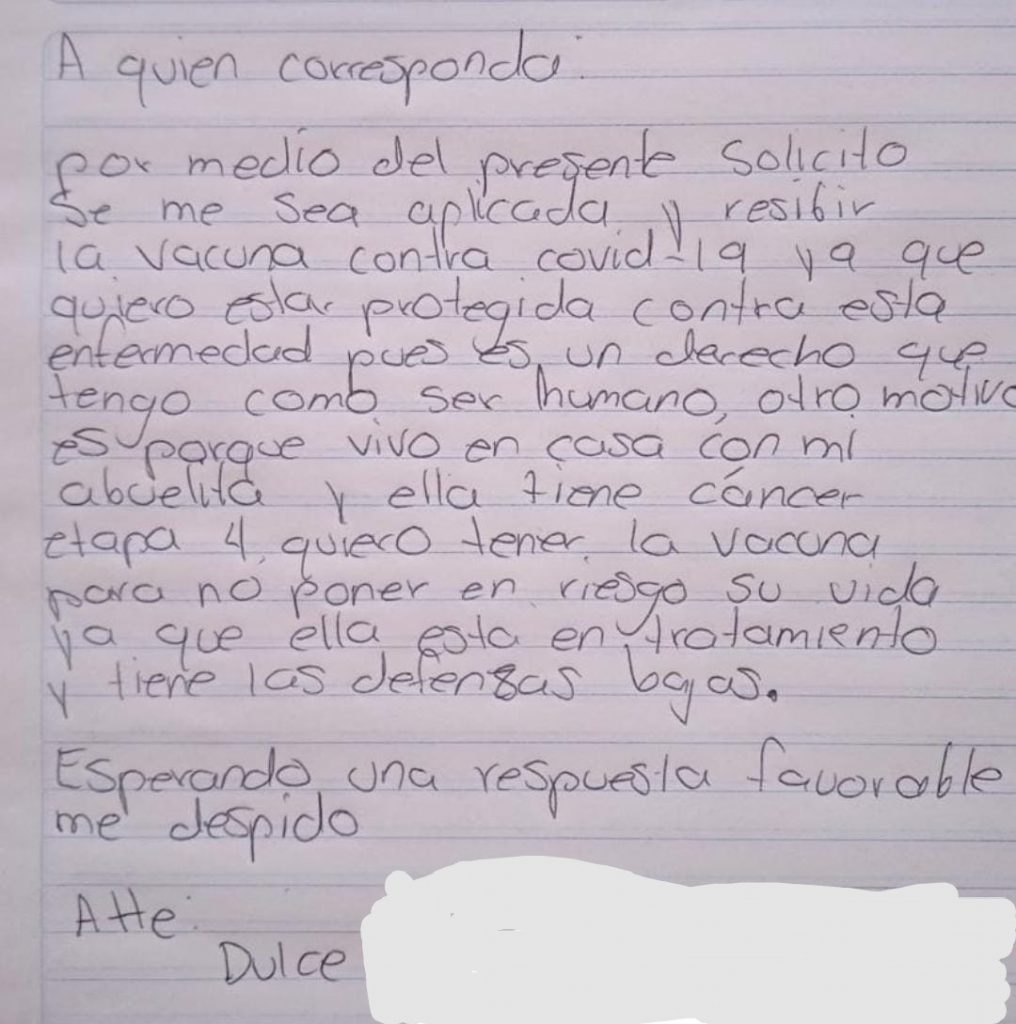 A quien corresponda:
por medio del presente solicito
se me sea aplicada y resibir
la vacuna contra covid-19 ya que
quiero estar protegida contra esta
enfermedad pues es un derecho que
tengo como ser humano, otro motivo
es porque vivo en casa con mi
abuelita y ella tiene cáncer
etapa 4, quiero tener la vacuna
para no poner en riesgo su vida
ya que ella esta en tratamiento
y tiene las defensas bajas.
Esperando una respuesta favorable
me despido
Atte:
Dulce